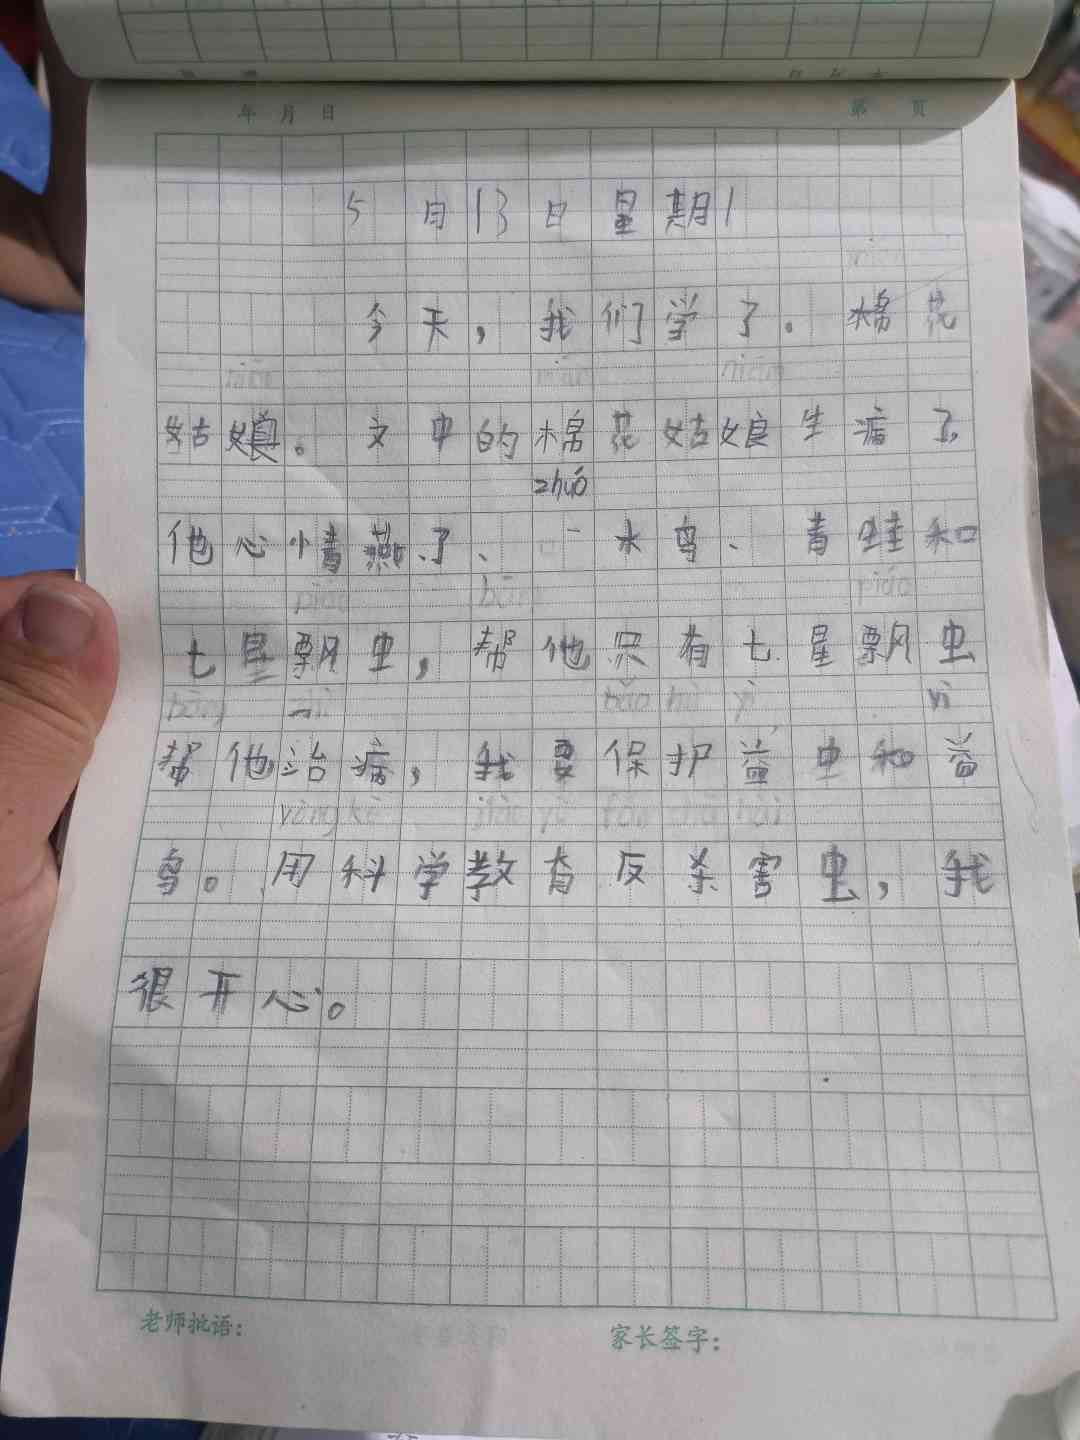 年 月 日 第 页
5月13日星期1
今天，我们学了。棉花
姑娘。文中的棉花姑娘生病了，
zhuó
他心情燕了、一木鸟、青蛙和
七星飘虫，帮他只有七星飘虫
yì
帮他治病，我要保护益虫和益
鸟。用科学教育反杀害虫，我
很开心。
老师批语： 家长签字：